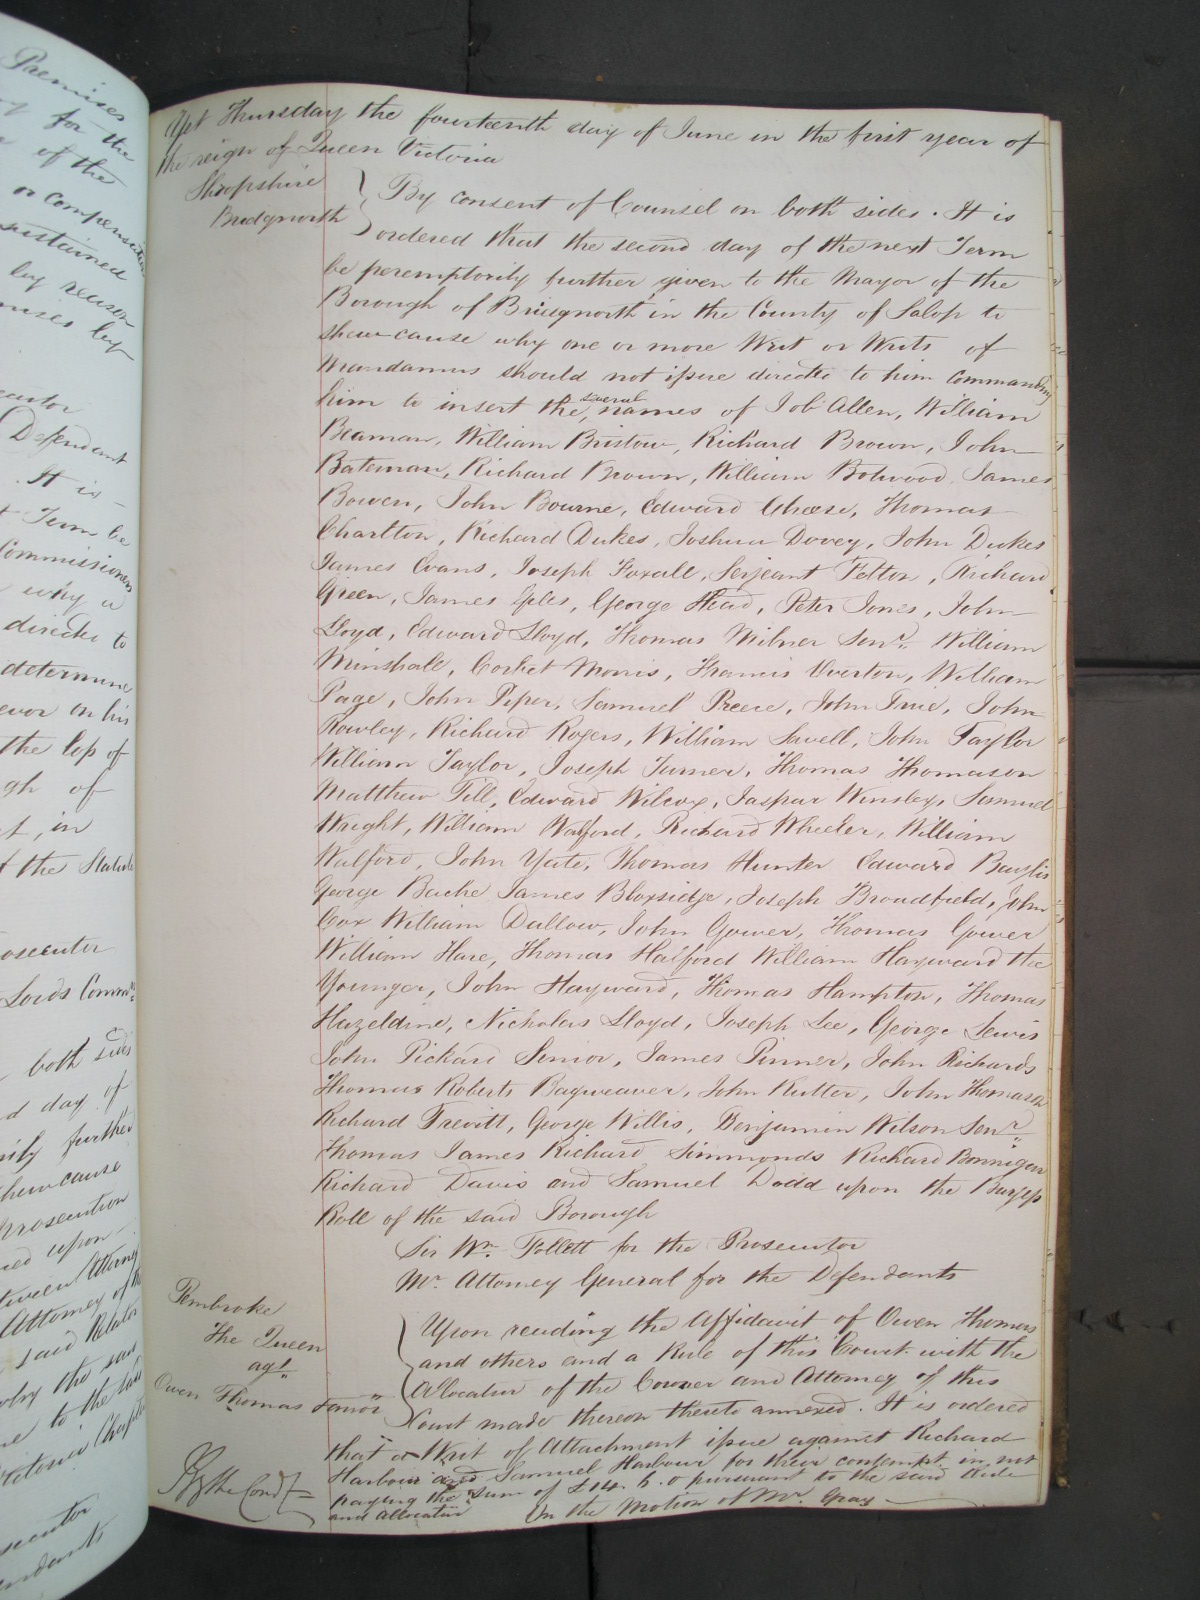 Yet Thursday the fourteenth day of June in the first year of
the reign of Queen Victoria
Shropshire
Bridgnorth
By consent of Counsel on both sides. It is
ordered that the second day of the next Term
be peremptorily further given to the Mayor of the
Borough of Bridgnorth in the County of Salop to
shew cause why one or more Writ or Writs of
Mandamus should not issue directed to him commanding
him to insert the several names of Job Allen, William
Beaman, William Bristow, Richard Brown, John
Bateman, Richard Brown, William Botwood, James
Bowen, John Bourne, Edward Cheese, Thomas
Charlton, Richard Dukes, Joshua Dovey, John Dukes
James Evans, Joseph Foxall, Serjeant Felton, Richard
Green, James Giles, George Head, Peter Jones, John
Lloyd, Edward Lloyd, Thomas Milner Senr. William
Minshall, Corbet Morris, Francis Overton, William
Page, John Piper, Samuel Preece, John Price, John
Rowley, Richard Rogers, William Sewell, John Taylor
William Taylor, Joseph Turner, Thomas Thomason
Matthew Till, Edward Wilcox, Jaspar Winsley, Samuel
Wright, William Walford, Richard Wheeler, William
Walford, John Yate, Thomas Hunter Edward Baylis
George Bache James Bloxsidge, Joseph Broadfield, John
Cox William Dallow, John Gower, Thomas Gower
William Hare, Thomas Halford William Hayward the
Younger, John Hayward, Thomas Hampton, Thomas
Hazeldine, Nicholas Lloyd, Joseph Lee, George Lewis
John Pickard Senior, James Pinner, John Richards
Thomas Roberts Bagweaver, John Rutter, John Thomason
Richard Trevitt, George Willis, Benjamin Wilson Senr.
Thomas James Richard Simmonds Richard Bonnigan
Richard Davis and Samuel Dodd upon the Burgess
Roll of the said Borough
Sir Wm. Follett for the Prosecutor
Mr. Attorney General for the Defendants
Pembroke
The Queen
agt.
Owen Thomas Junior
Upon reading the Affidavit of Owen Thomas
and others and a Rule of this Court with the
Allocatur of the Coroner and Attorney of this
Court made thereon thereto annexed. It is ordered
that a Writ of Attachment issue against Richard
Harbour and Samuel Harbour for their contempt in not
paying the Sum of £14. 6. 0 pursuant to the said Rule
and Allocatur
On the Motion of Mr. Gray
By the Court